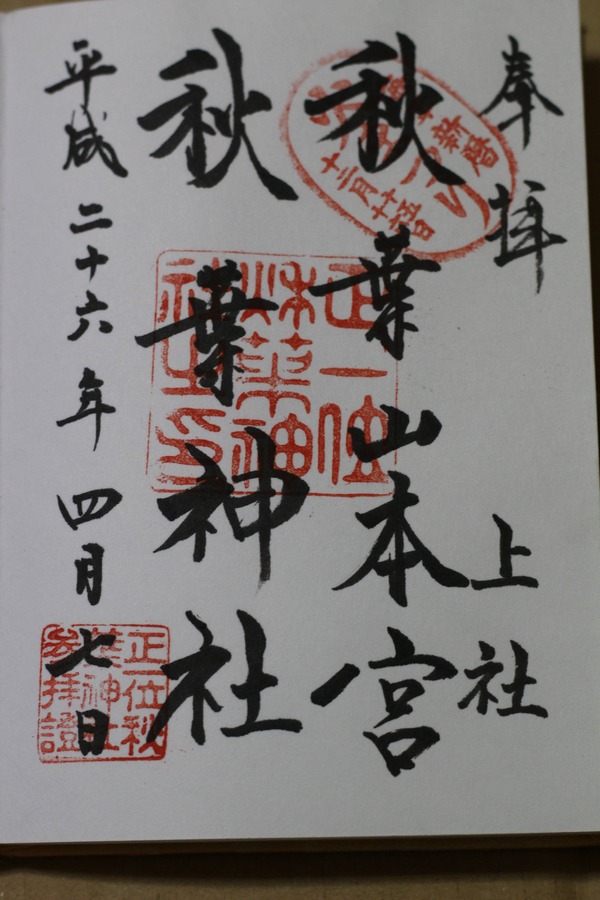 奉拝
上社
秋葉山本宮
秋葉神社
平成二十六年四月七日
正一位
秋葉神
社之印
正一位秋
葉神社
参拝證
新暦
十二月十五日